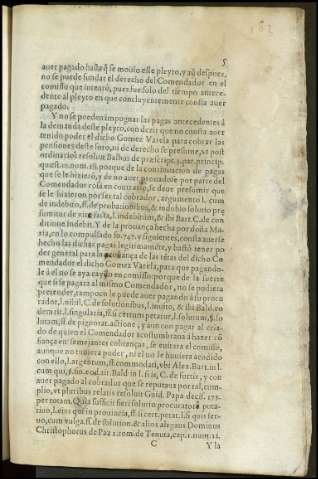 5
auer pagado hasta q̃ se mouio este pleyto, y aũ despues,
no se puede fundar el derecho del Comendador en el
comisso que intentò, pues fue solo del tiempo antece-
dente al pleyto en que concluyentemente consta auer
pagado.
Y no se pueden impugnar las pagas antecedentes à
la demanda deste pleyto, con dezir que no consta auer
tenido poder el dicho Gomez Varela para cobrar las
pensiones deste foro, ni de derecho se presume, vt post
ordinarios resoluit Balbus de præscript. 
porque de la continuacion de pagas
que se le hizierō, y de no auer por parte del
Comendador cosa en contrario, se deue presumir que
se le hizieron por ser tal cobrador, argumento l. cum
de indebito, ff. de probationibus, & indubio solutio præ
sumitur vice facta, l. indebitum, & ibi Bart. C. de con
dictione indeb. Y de la prouança hecha por doña Ma-
ria, en lo compulsado fo. 747. y siguientes, consta auerse
hecho las dichas pagas legitimamente, y bastò tener po
der general para la cobrança de las rētas del dicho Co
mendador el dicho Gomez Varela, para que pagando-
le à el no se aya caydo en comisso: porque de la suerte
que si se pagara al mismo Comendador, no se pudiera
pretender, tampoco le puede auer pagando à su procu
rador, l. nihil, C. de solutionibus, l. inuito, & ibi Bald. eo
dem tit. l. singularia, ff. si certum petatur, l. solutum, §. so
lutam, ff. de pignorat. actione, y aun con pagar al cria-
do de quien el Comendador acostumbraua hazer cō
fiança en semejantes cobranças, se euitara el comisso,
aunque no tuuiera poder, ni el uo le huuiera acudido
con ello, l. argentum, ff. commodati, vbi Alex. Bart. in l.
cum qui, §. fin. eod. ait Bald. in l. si is, C. de furtis, y con
auer pagado al cobrador que se reputaua por tal, cum-
plio, et pluribus relatis resoluit Guid. Papa decis. 175.
per totam. Quia sufficit fieri solutio procuratori puta-
tiuo, l. eius qui in prouincia, ff. si cert. petat. l. si quis ser-
uo, cum vulga. ff. de solution. & alios alegans Dominus
Christophorus de Paz 1. tom. de Tenuta, cap. 1. num. 21.
C
Y la